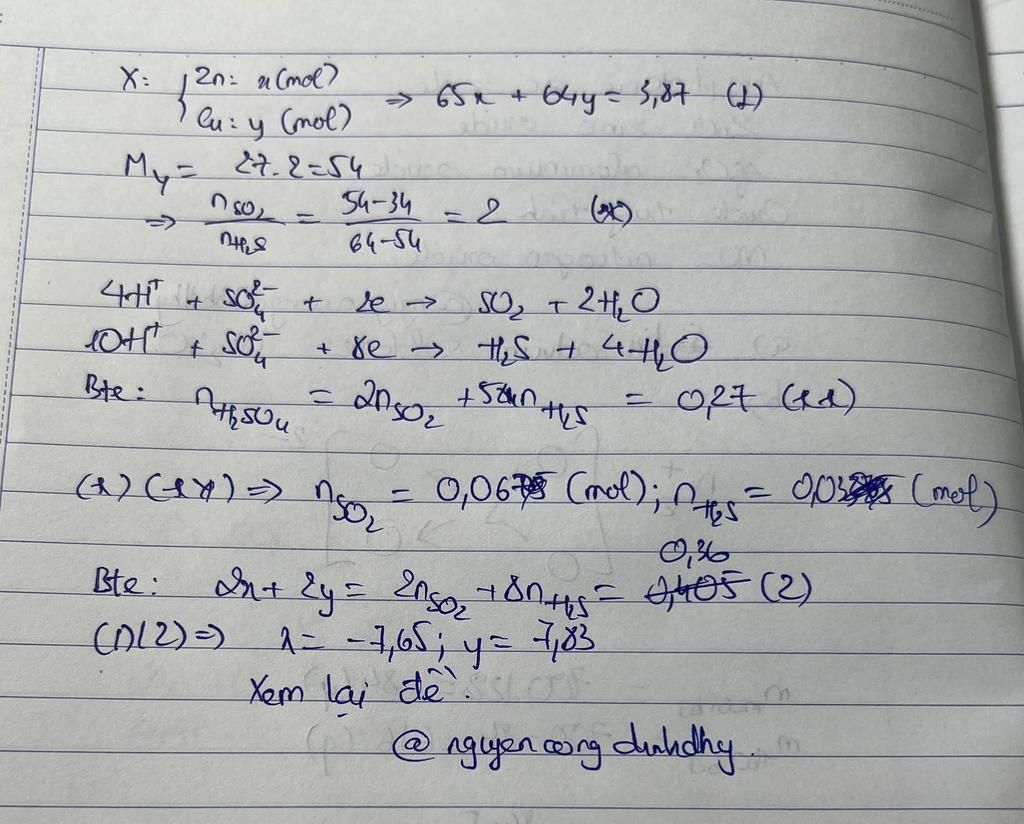 X: { Zn: x (mol)
Cu: y (mol) ⇒ 65x + 64y = 3,87 (1)
M_Y = 27.2 = 54
⇒ n_SO₂ / n_H₂S = (54-34) / (64-54) = 2 (*)
4H⁺ + SO₄²⁻ + 2e → SO₂ + 2H₂O
10H⁺ + SO₄²⁻ + 8e → H₂S + 4H₂O
Bte: n_H₂SO₄ = 2n_SO₂ + 5n_H₂S = 0,27 (**)
(*) (**) ⇒ n_SO₂ = 0,06 (mol); n_H₂S = 0,03 (mol)
0,36
Bte: 2x + 2y = 2n_SO₂ + 8n_H₂S = 0,405 (2)
(1)(2) ⇒ x = -7,65; y = 7,83
Xem lại đề.